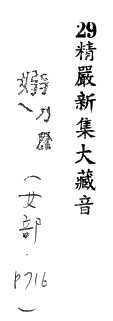 29精嚴新集大藏音
嫋乃(女部.P716)